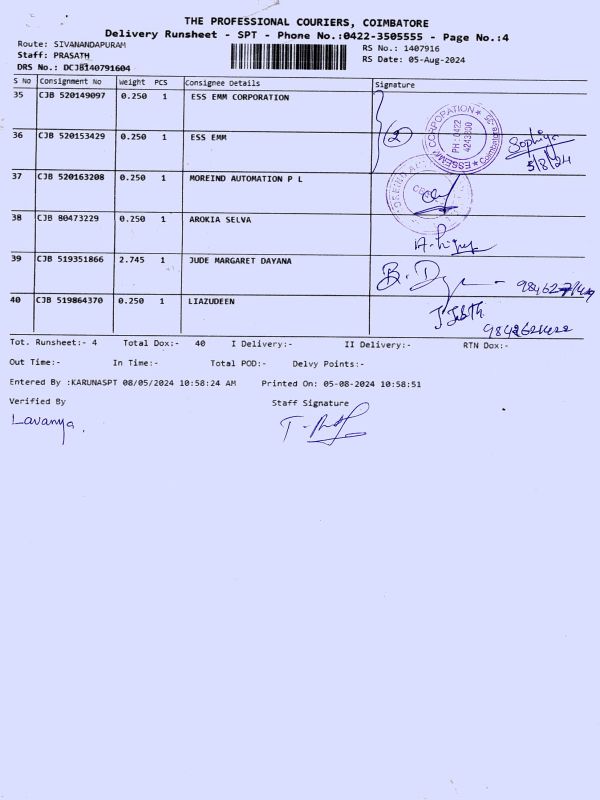 THE PROFESSIONAL COURIERS, COIMBATORE
Delivery Runsheet - SPT - Phone No.:0422-3505555 - Page No.:4
Route: SIVANANDAPURAM RS No.: 1407916
Staff: PRASATH RS Date: 05-Aug-2024
DRS No.: DCJB140791604
S No Consignment No Weight PCS Consignee Details Signature
35 CJB 520149097 0.250 1 ESS EMM CORPORATION
36 CJB 520153429 0.250 1 ESS EMM
(2)
ESSEMM CORPORATION
PH : 0422
4243800
Coimbatore
Sophiya
5/8/24
37 CJB 520163208 0.250 1 MOREIND AUTOMATION P L
38 CJB 80473229 0.250 1 AROKIA SELVA
39 CJB 519351866 2.745 1 JUDE MARGARET DAYANA
40 CJB 519864370 0.250 1 LIAZUDEEN
Tot. Runsheet:- 4 Total Dox:- 40 I Delivery:- II Delivery:- RTN Dox:-
Out Time:- In Time:- Total POD:- Delvy Points:-
Entered By :KARUNASPT 08/05/2024 10:58:24 AM Printed On: 05-08-2024 10:58:51
Verified By Staff Signature
Lavanya.